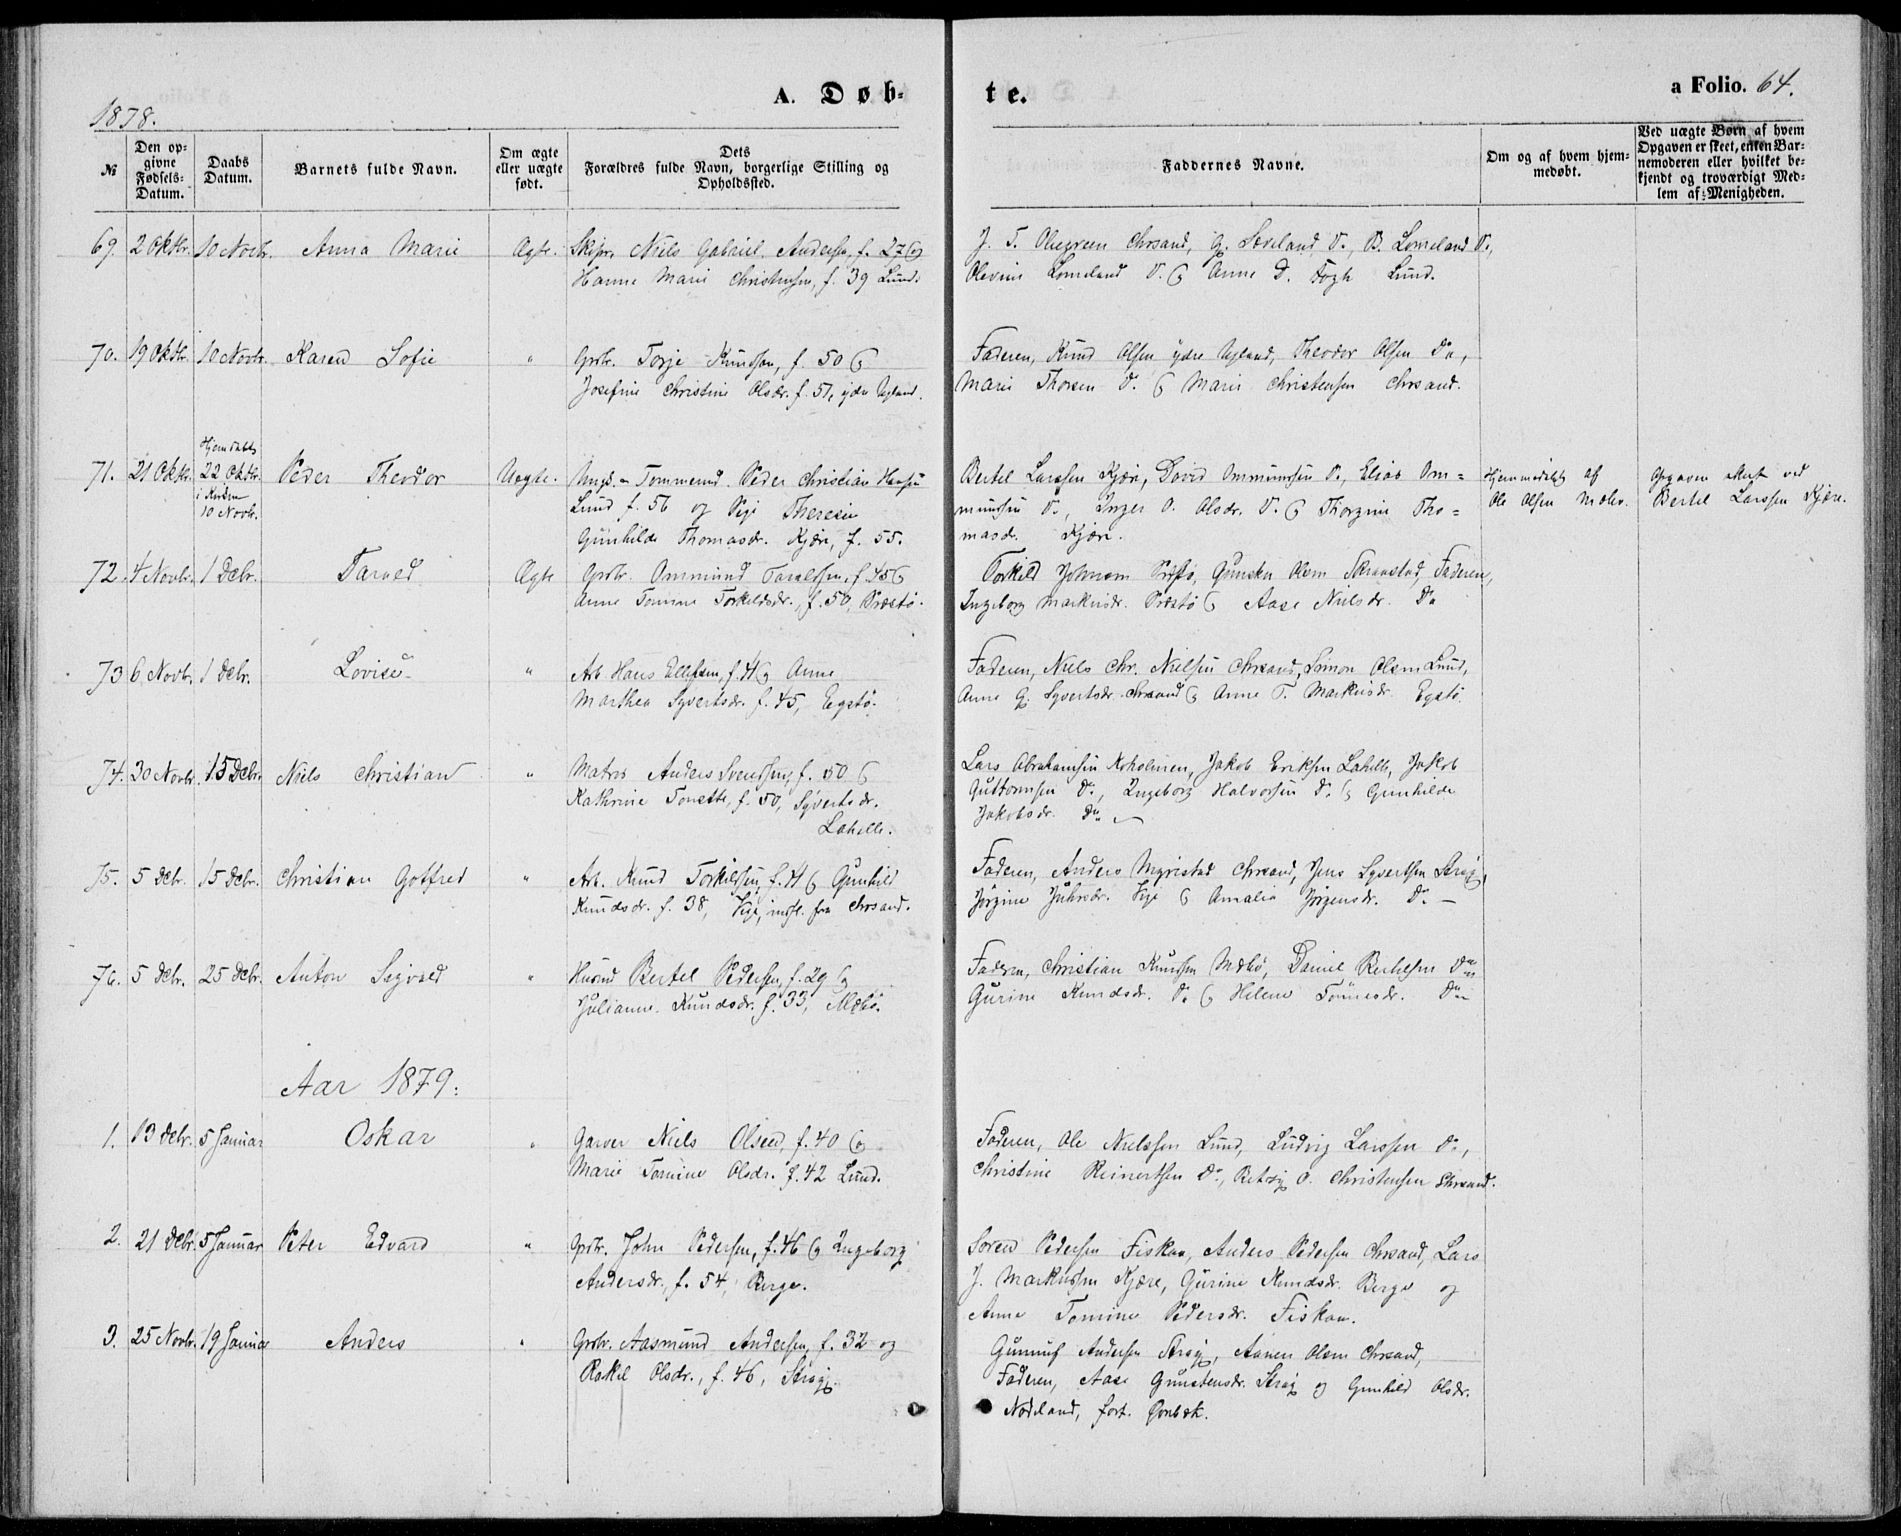 A. Døb-
te.
a Folio. 64.
1878.
№
Den op-
givne
Fødsels-
Datum.
Daabs
Datum.
Barnets fulde Navn.
Om ægte
eller uægte
født.
Dets
Forældres fulde Navn, borgerlige Stilling og
Opholdssted.
Faddernes Navne.
Om og af hvem hjem-
medøbt.
Ved uægte Børn af hvem
Opgaven er skeet, enten Bar-
nemoderen eller hvilket be-
kjendt og troværdigt Med-
lem af Menigheden.
69. 2 Oktbr. 10 Novbr. Anna Marie Ægte. Skipr. Niels Gabriel Andersen, f. 27 og
Hanne Marie Christensen, f. 39 Lund.
J. T. Chrsand, G. D., B. Lomeland D.,
Olevine Lomeland D. og Anne D. Fogh Lund.
70. 19 Oktbr. 10 Novbr. Karen Sofie " Grbr. Torje Knudsen, f. 50 og
Josefine Christine Olsdr. f. 51, ydre Ugland.
Faderen, Knud Olsen ydre Ugland, Theodor Olsen Do,
Marie Thorsen D. og Marie Christensen Chrsand.
71. 21 Oktbr. Hjemdøbt
22 Oktbr.
i Kirken
10 Novbr.
Peder Theodor Uægte. Ungk. Tømmermd. Peder Christian Hansen
Lund f. 56 og Pige Theresie
Gunhilde Thomasdr. Kjære, f. 55.
Bertel Larssen Kjære, David Ommundsen D., Elias Om-
mundsen D., Inger O. Olsdr. D. og Thorgine Tho-
masdr. Kjære.
Hjemmedøbt af
Ole Olsen
Opgaven skeet ved
Bertel Larssen Kjære.
72. 4 Novbr. 1 Debr. Tarald Ægte Grbr. Ommund Taraldsen, f. 45 og
Anne Tomine Torkildsdr., f. 50, Præstø.
Torkild Johnsen Præstø, Gunsten Olsen Skraastad, Faderen,
Ingeborg Markusdr. Præstø og Aase Nielsdr. Do
73 6 Novbr. 1 Debr. Lovise " Arb. Hans Ellefsen, f. 41 og Anne
Marthea Syvertsdr. f. 45, Egstø.
Faderen, Niels Chr. Nielsen Chrsand, Simon Olsen Lund,
Anne G. Syvertsdr. Chrsand og Anne T. Markusdr. Egstø.
74. 30 Novbr. 15 Debr. Niels Christian " Matros Anders Svendsen, f. 50 og
Kathrine Tonette, f. 50, Syvertsdr.
Lahelle.
Lars Abrahamsen Kokolmen, Jakob Eriksen Lahelle, Jakob
Guttormsen Do, Ingeborg Halvorsen D. og Gunhilde
Jakobsdr. Do
75. 5 Debr. 15 Debr. Christian Gotfred " Arb. Knud Torkildsen, f. 41 og Gunhild
Knudsdr. f. 38, Vige, indfl. fra Chrsand.
Faderen, Anders Myrestad Chrsand, Jens Syvertsen Strøj,
Jørgine Vige og Amalie Jørgensdr. D.
76. 5 Debr. 25 Debr. Anton Sigvald " Husmd Bertel Pedersen, f. 29 og
Julianne Knudsdr. f. 33, Mæbø.
Faderen, Christian Knudsen Mæbø, Daniel Bertelsen Do
Gurine Knudsdr. D. og Helene Tønnesdr. Do
Aar 1879.
1. 13 Debr. 5 Januar Oskar " Garver Niels Olsen, f. 40 og
Marie Tomine Olsdr. f. 42 Lund.
Faderen, Ole Nielssen Lund, Ludvig Larssen Do,
Christine Reinertsen Do, Betsy O. Christensen Chrsand.
2. 21 Debr. 5 Januar Peter Edvard " Grbr. John Pedersen, f. 46 og Ingeborg
Andersdr., f. 54, Berge.
Søren Pedersen Fiskaa, Anders Pedersen Chrsand, Lars
J. Markussen Kjære, Gurine Knudsdr. Berge og
Anne Tomine Pedersdr. Fiskaa.
3. 25 Novbr. 19 Januar Anders " Grbr. Aasmund Andersen, f. 32 og
Rakel Olsdr., f. 46, Strøj.
Gunnuf Andersen Strøj, Aanen Olsen Chrsand,
Faderen, Aase Gunstensdr. Strøj og Gunhild Olsdr.
Nodeland, fort.